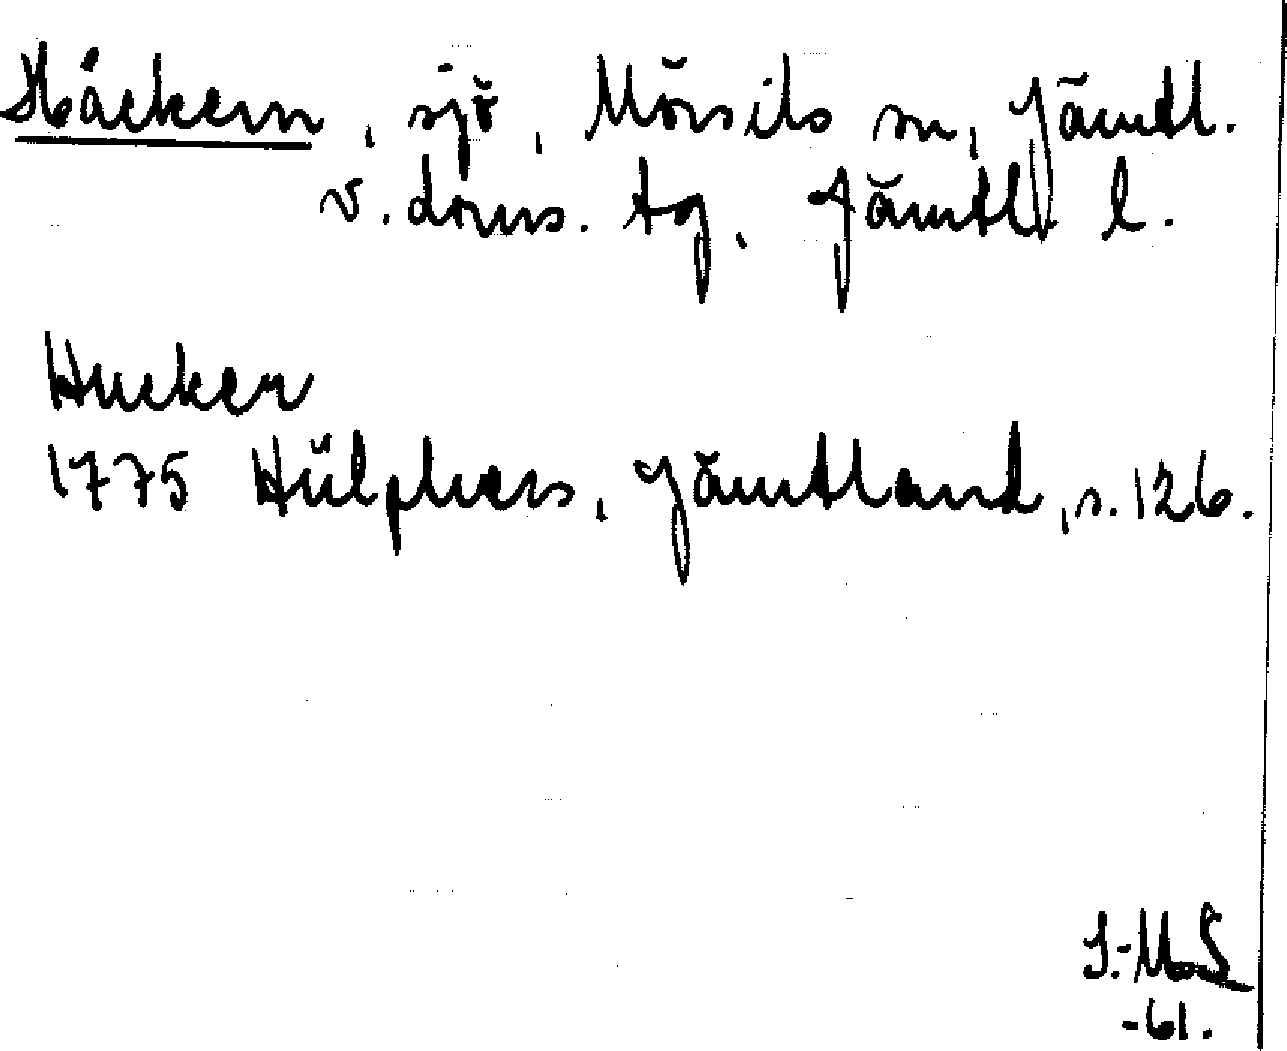 Håckern, sjö, Mörsils sn, Jämtl.
v. doms. tg, Jämtl. l.
Hucker
1775 Hülphers, Jämtland, s. 126.
I.-M.S
-61.